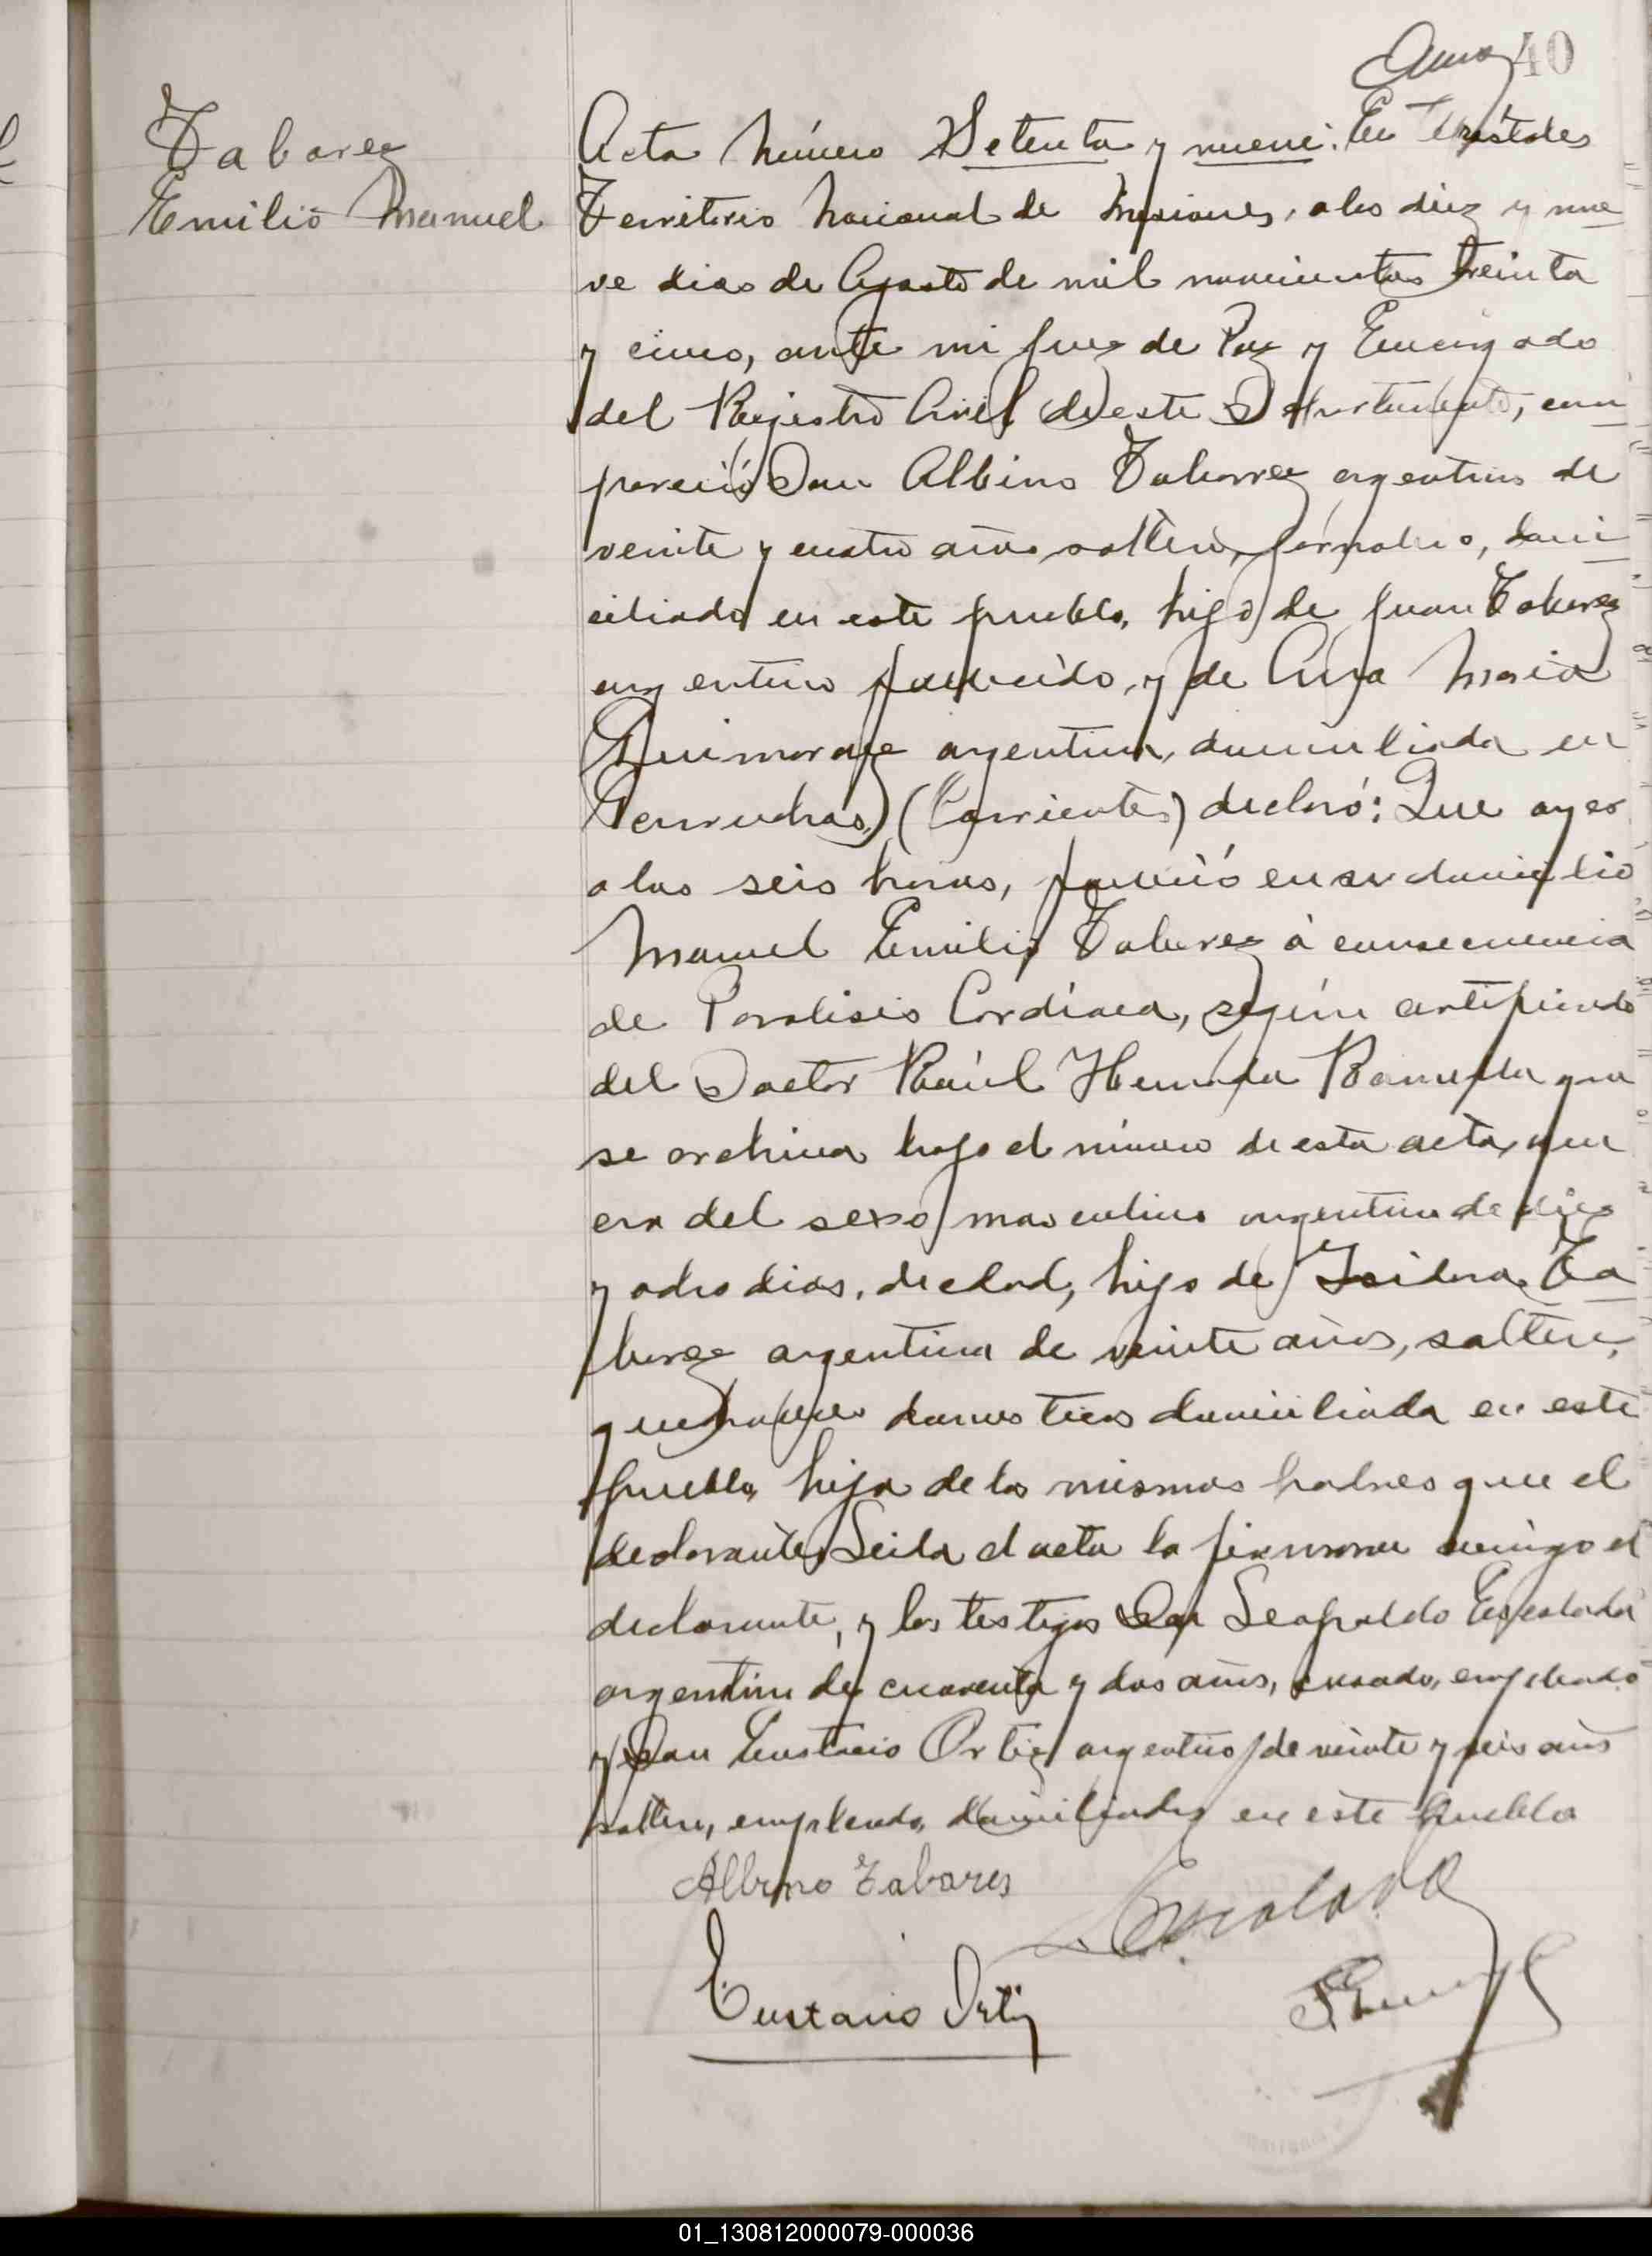 40
Tabarez
Emilio Manuel
Acta Número Setenta y nueve: En Apóstoles
Territorio Nacional de Misiones, a los diez y nue
ve dias de Agosto de mil novecientos treinta
y cinco, ante mi Juez de Paz y Encargado
del Registro Civil de este Departamento, com
pareció Don Albino Tabarez argentino de
veinte y cuatro años soltero, jornalero, domi
ciliado en este pueblo, hijo de Juan Tabarez
argentino fallecido, y de Ana Maria
argentina, domiciliada en
(Corrientes) declaró: Que ayer
a las seis horas, falleció en su domicilio
Manuel Emilio Tabarez á consecuencia
de Paralisis Cardíaca, según certificado
del Doctor Raúl que
se archiva bajo el número de esta acta, que
era del sexo masculino argentino de diez
y ocho dias, de edad, hijo de Isidora Ta
barez argentina de veinte años, soltera,
quehaceres domesticos domiciliada en este
pueblo, hija de los mismos padres que el
declarante. Leida el acta la firmaron conmigo el
declarante, y los testigos Don Leopoldo Escalada
argentino de cuarenta y dos años, casado, empleado
y Don Eustacio Ortiz argentino de veinte y seis años
soltero, empleado, domiciliados en este pueblo
Albino Tabares
L. Escalada
Eustacio Ortiz
01_130812000079-000036